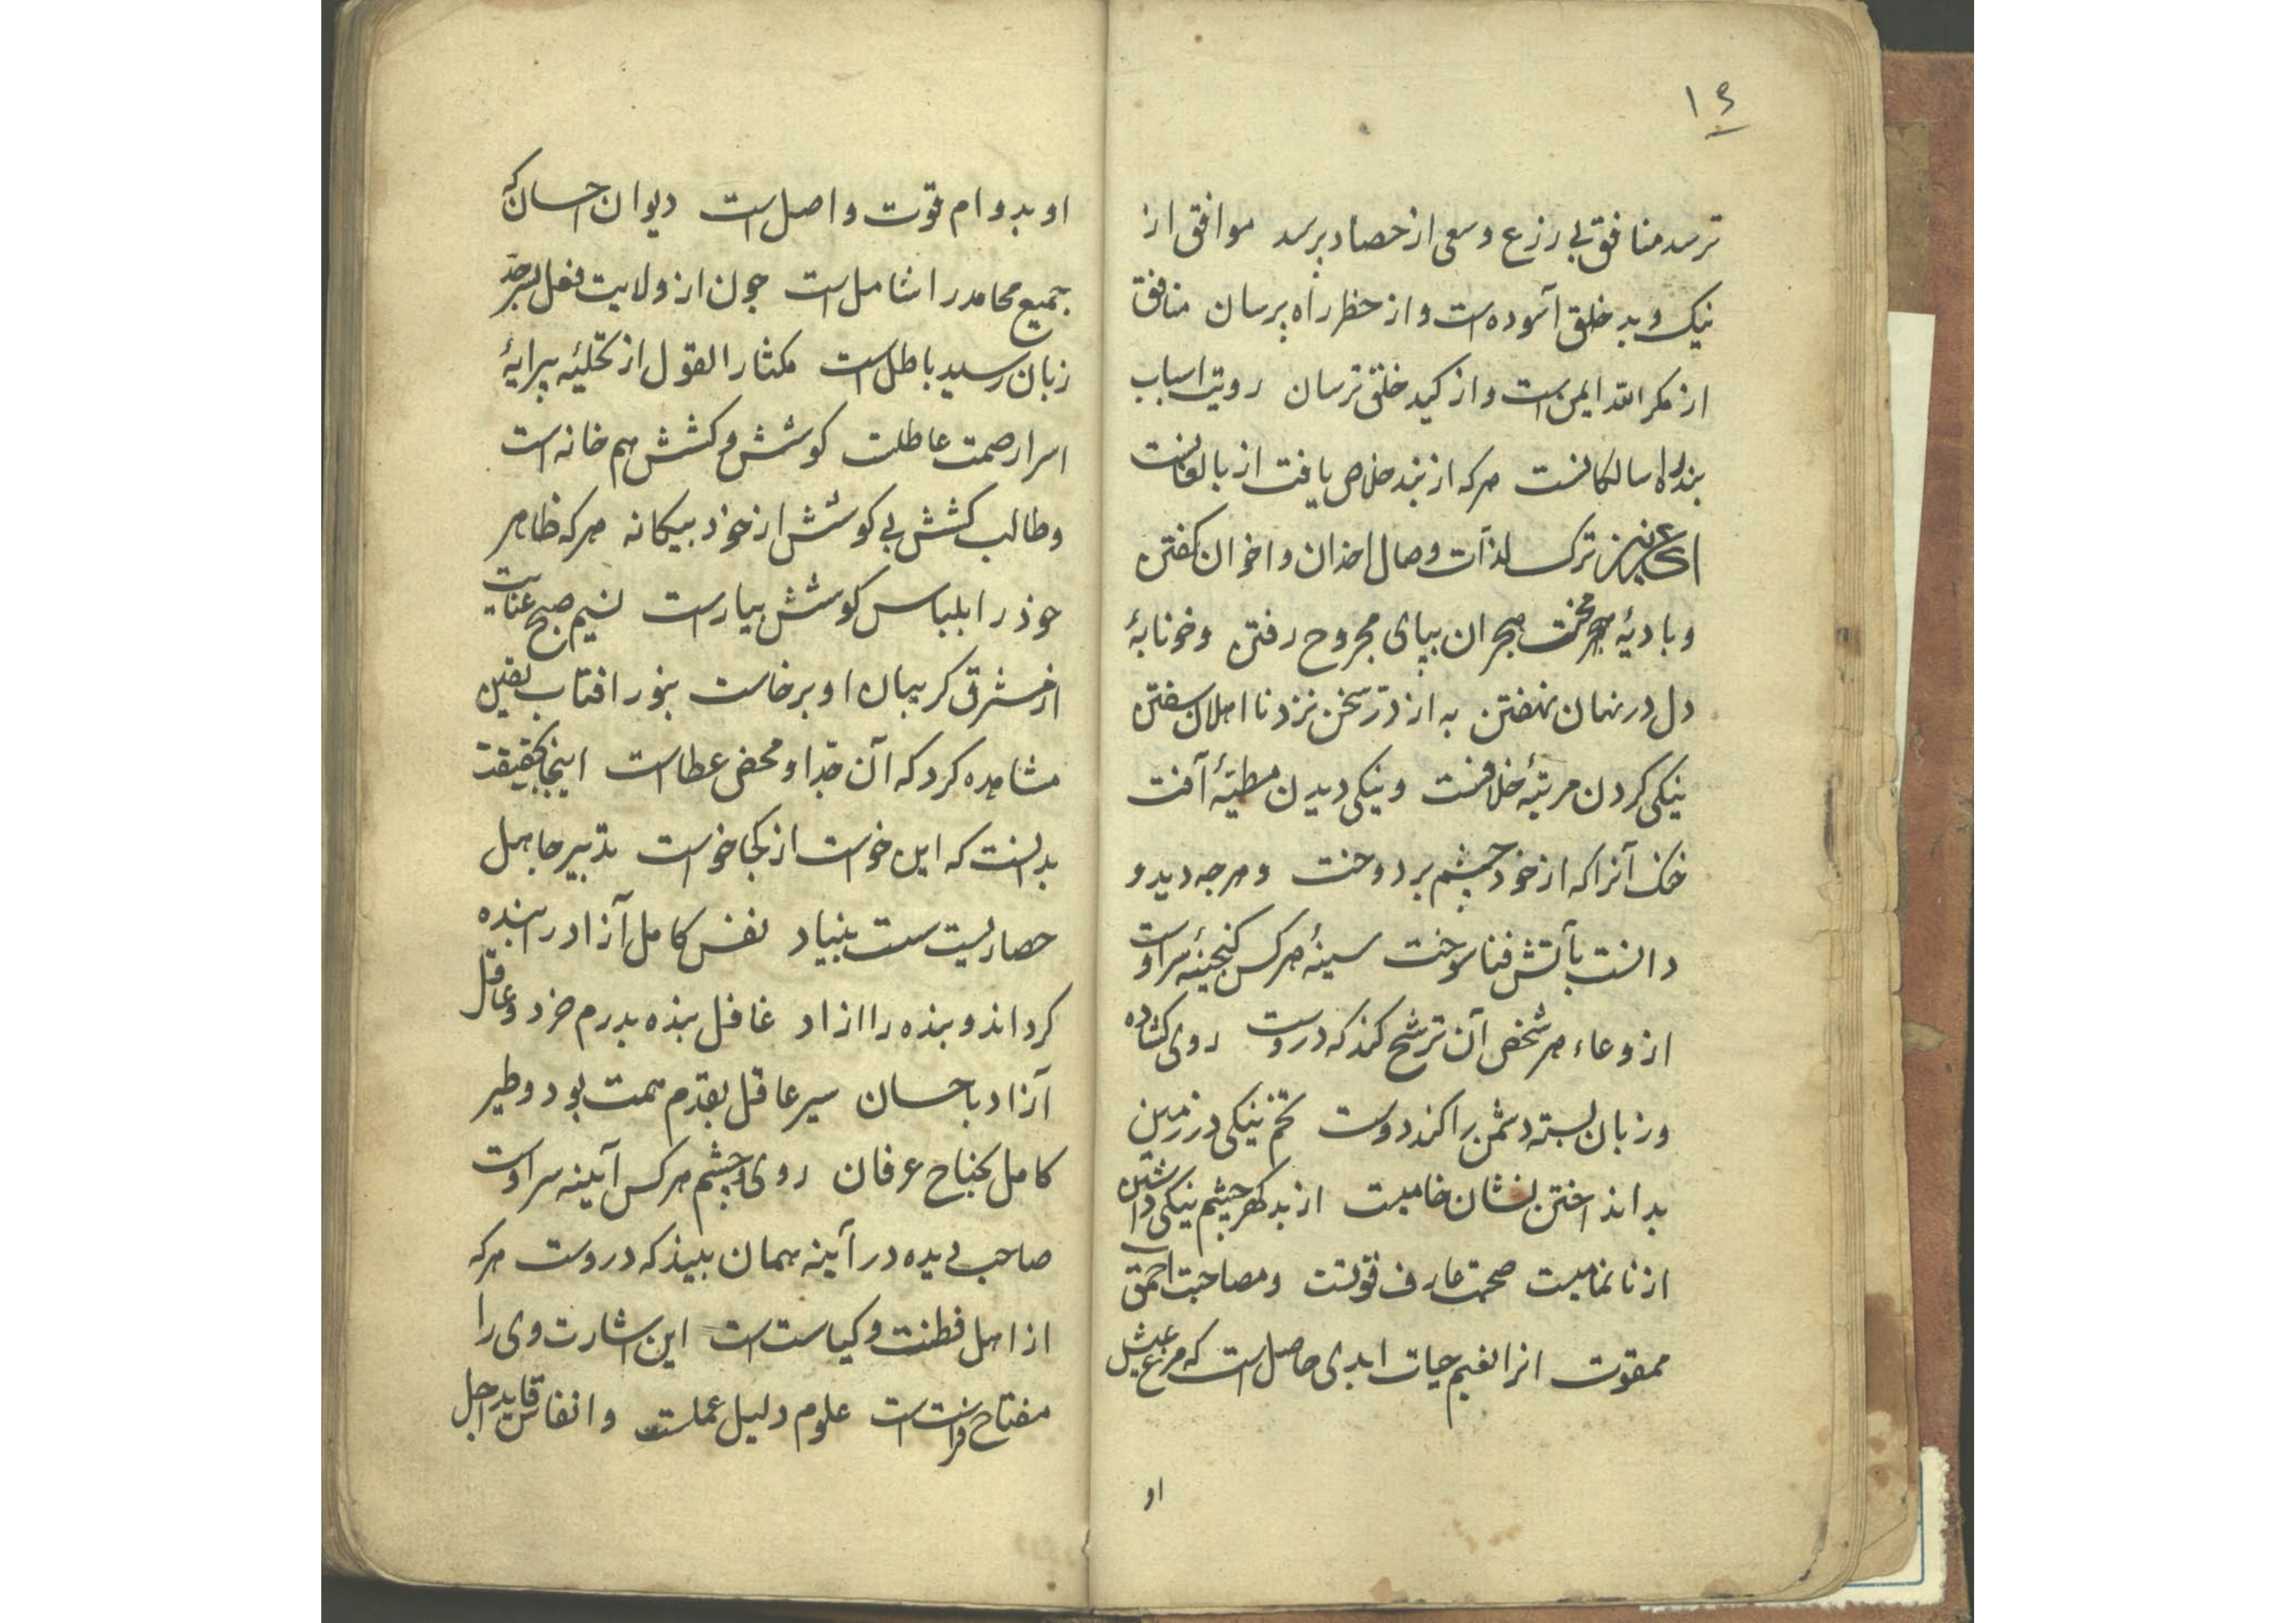 ۱۴
ترسد منافق بی زرع و سعی از حصاد برسد موافق از
نیک و بد خلق آسوده است و از خطر راه پرسان منافق
از مکر الله ایمن است و از کید خلق ترسان رویت اسباب
بند راه سالکانست هرکه از بند خلاص یافت از بالغانست
ای عزیز ترک لذات وصال اخدان و اخوان کفتن
و بادیهٔ محنت هجران بپای مجروح رفتن و خونابهٔ
دل در نهان نهفتن به از در سخن نزد نااهلان سفتن
نیکی کردن مرتبهٔ خلافتست و نیکی دیدن مطیّهٔ آفت
خنک آنرا که از خود چشم بردوخت و هرجه دید و
دانست بآتش فنا سوخت سینهٔ هرکس کنجینهٔ سر اوست
از وعاء هر شخص آن ترشح کند که دروست روی کشاده
و زبان بسته دشمن را کند دوست تخم نیکی در زمین
بد انداختن نشان خامیست از بد کهر چشم نیکی داشتن
از ناتمامیست صحبت عارف قوتست و مصاحبت احمق
ممقوت انرا نعیم حیات ابدی حاصل است که مرغ عیش
او
او بدوام قوت واصل است دیوان احسان که
جمیع محامد را شامل است جون از ولایت فعل بسرحدّ
زبان رسید باطل است مکثار القول از تحلیهٔ پیرایهٔ
اسرار صمت عاطلت کوشش و کشش هم خانه است
و طالب کشش بی کوشش از خود بیکانه هرکه ظاهر
خوذ را بلباس کوشش بیاراست نسیم صبح عنایت
از مشرق کریبان او برخاست بنور افتاب یقین
مشاهده کرد که آن جدّ او محض عطاست اینجا بحقیقت
بدانست که این خواست از کجا خواست تدبیر جاهل
حصاریست سست بنیاد نفس کامل آزاد را بنده
کرداند و بنده را ازاد غافل بنده بدرم خرد و عاقل
آزاد باحسان سیر عاقل بقدم همت بود و طیر
کامل بجناح عرفان روی و چشم هرکس آینه سر اوست
صاحب دیده در آینه همان بیند که دروست هرکه
از اهل فطنت و کیاست است این اشارت وی را
مفتاح فراست است علوم دلیل عملست و انفاس قاید اجل